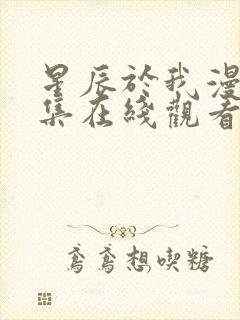 星辰於我漫
集在綫觀看
鸢鸢想喫糖